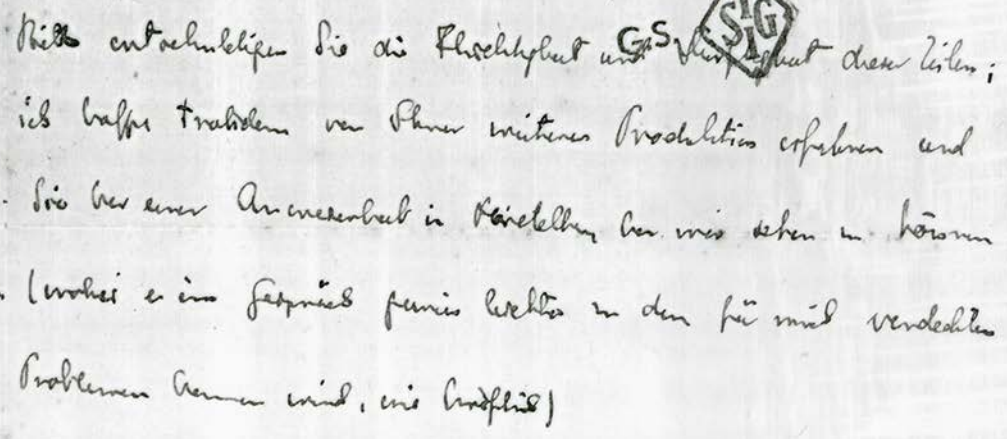 Bitte entschuldigen Sie die Flüchtigkeit und dieser Zeilen;
ich hoffe trotzdem von Ihrer weiteren Produktion erfahren und
Sie bei einer Anwesenheit in bei mir sehen zu können
(wobei ein Gespräch gewiss leichter zu den für mich verdeckten
Problemen kommen wird, wie brieflich)